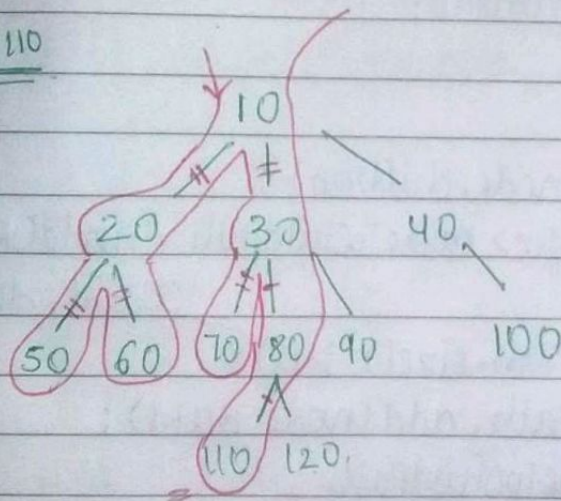 110
10
20 30 40
50 60 70 80 90 100
110 120.